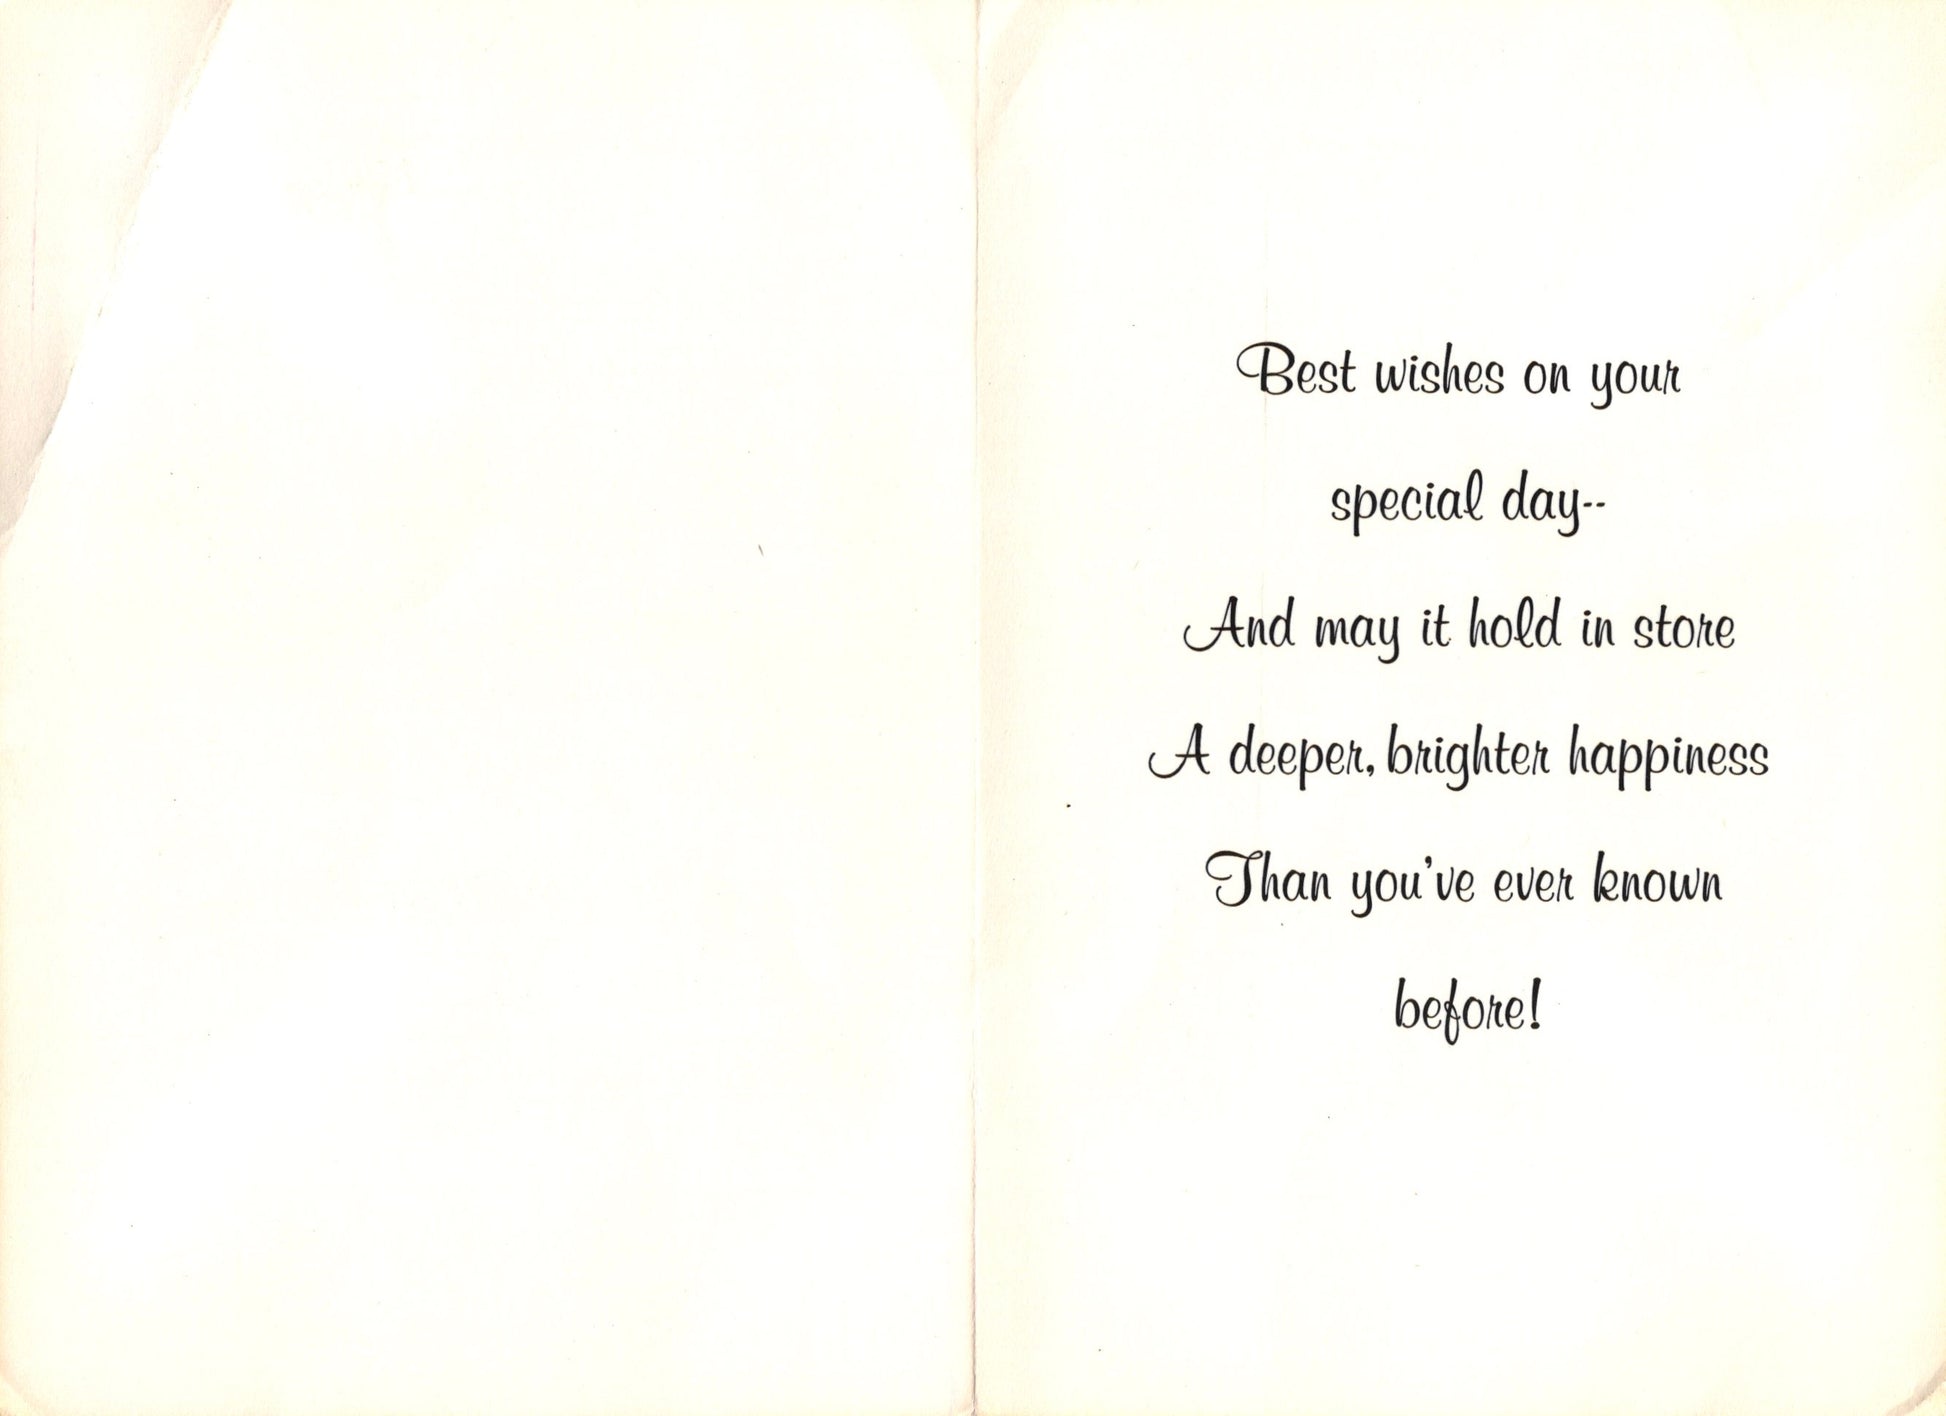 Best wishes on your
special day--
And may it hold in store
A deeper, brighter happiness
Than you've ever known
before!